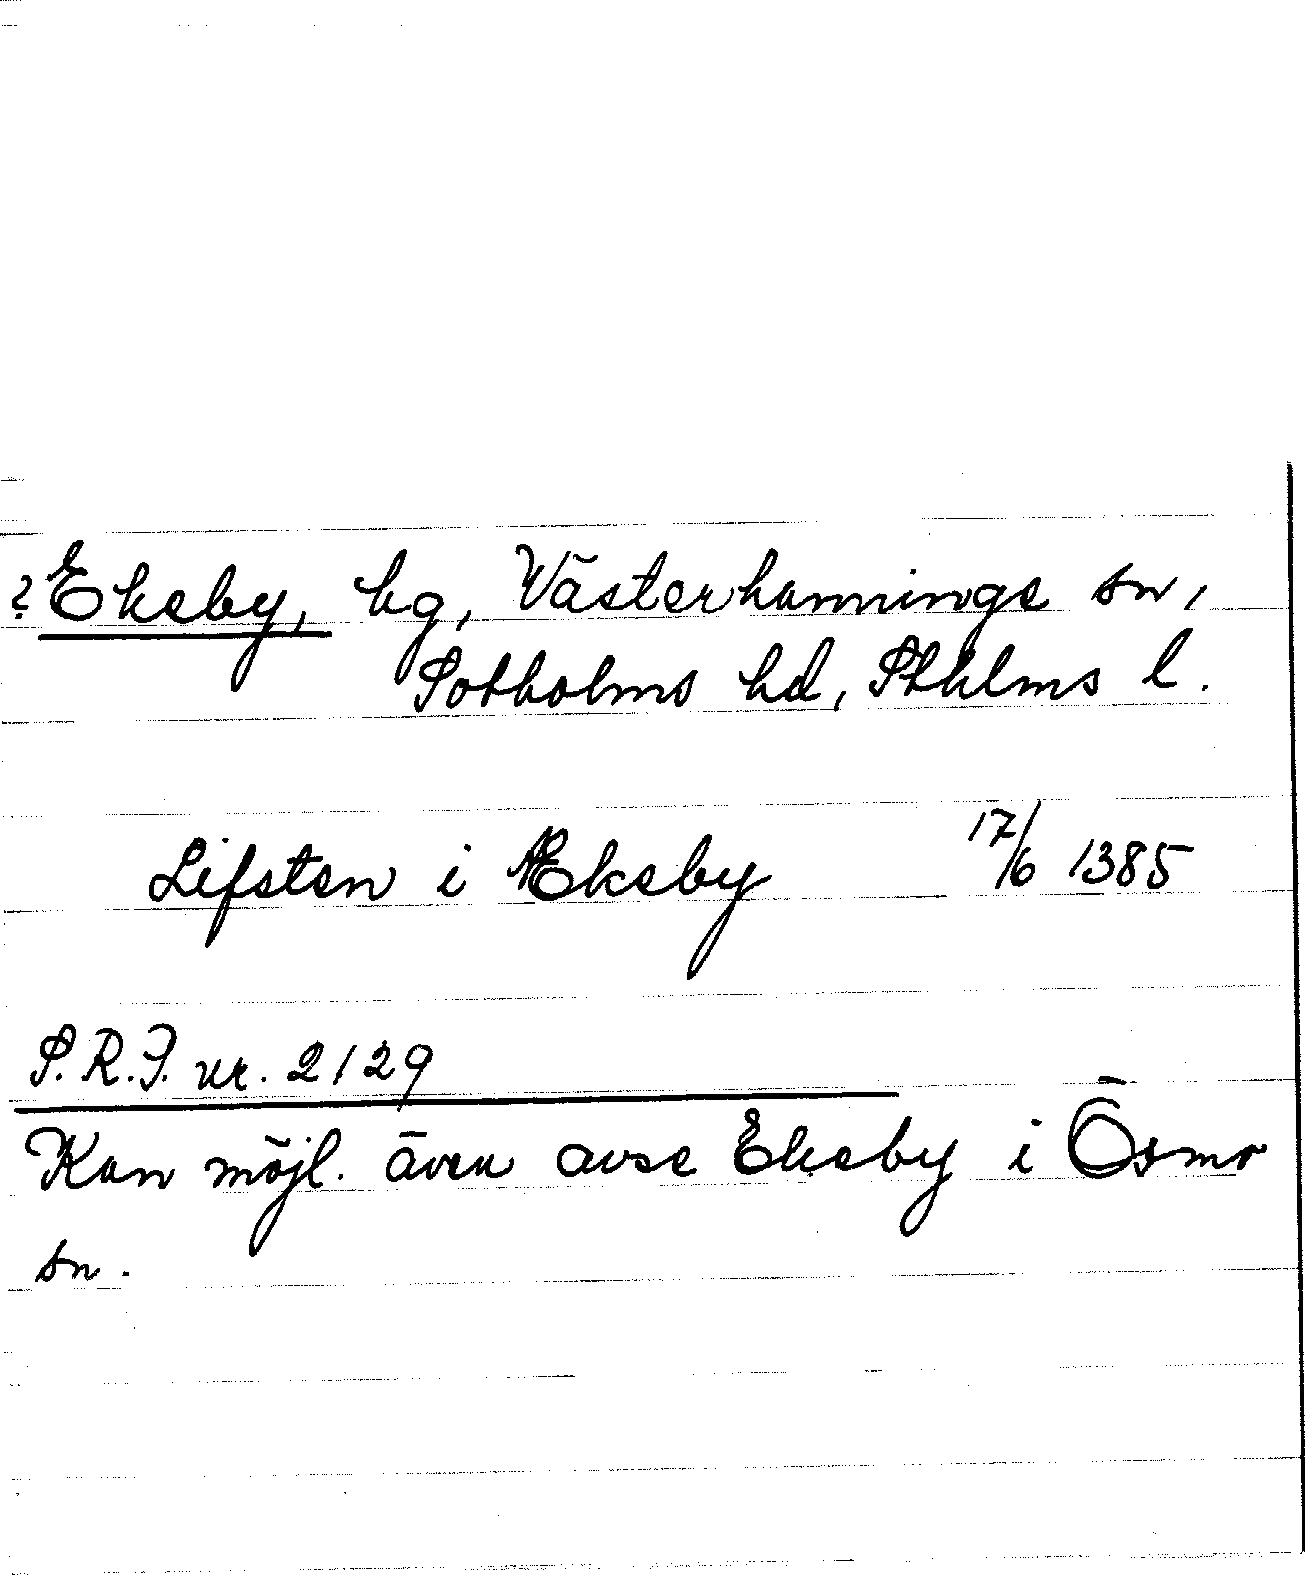 ? Ekeby, hg, Västerhanninge sn,
Sotholms hd, Sthlms l.
Lifsten i Ækeby 17/6 1385
S.R.P. nr. 2129
Kan möjl. även avse Ekeby i Ösmo
sn.